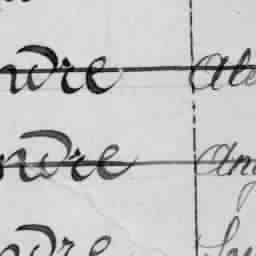 ndre Al
ndre Ang
ndre